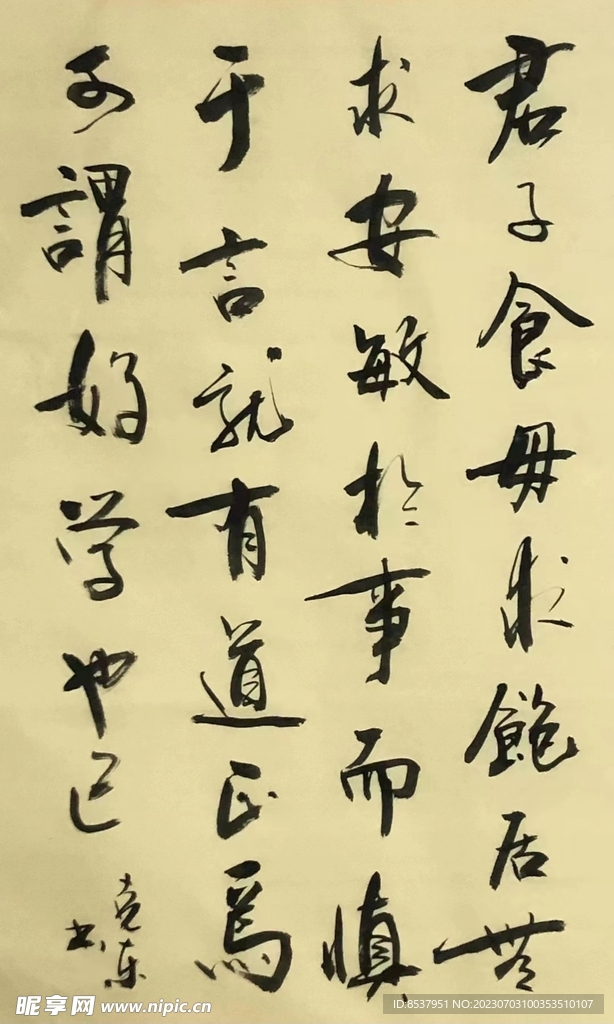 君子食毋求飽居無
求安敏於事而慎
于言就有道正焉
可謂好学也已
克东
书
昵享网 www.nipic.cn
ID:8537951 NO:20230703100353510107